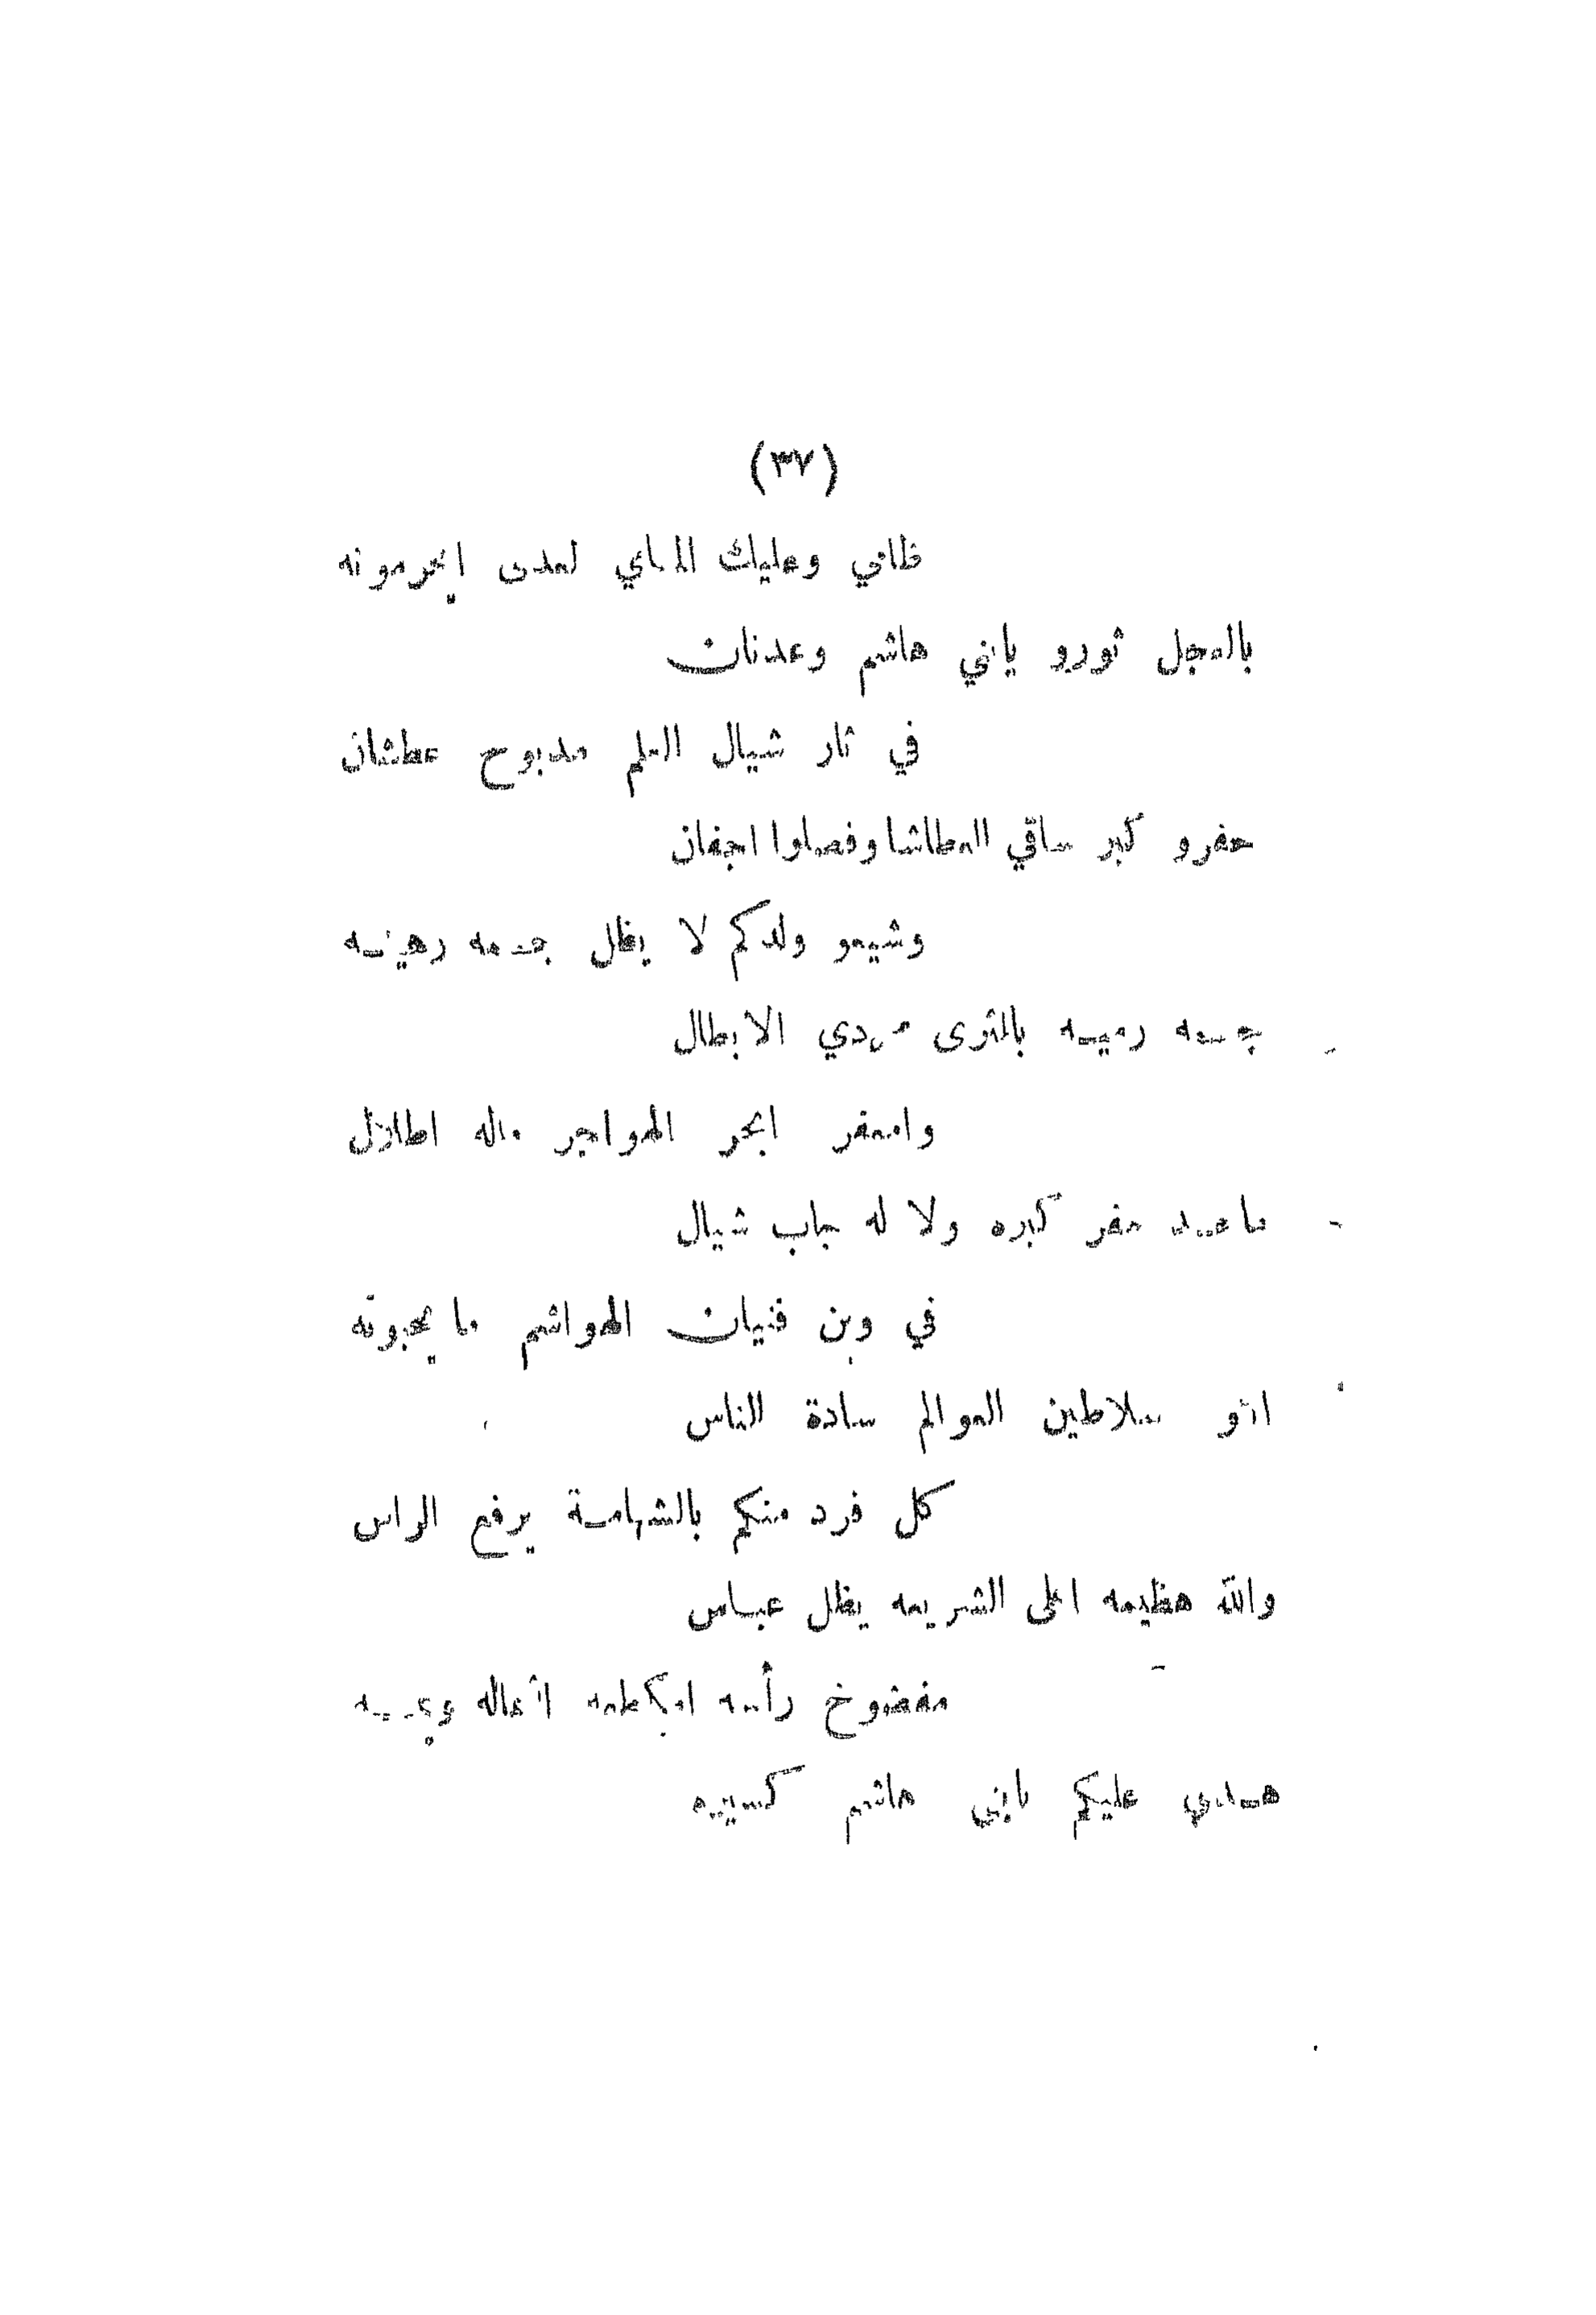 (٣٧)
ظامي وعليك الماي لعدى ايحرمونه
بالعجل ثورو يابني هاشم وعدنان
في ثار شيال العلم مذبوح عطشان
حفرو كبر ساقي العطاشا وفصلوا اجفان
وشيعو ولدكم لا يظل جسمه رهينه
جسمه رميه بالثرى مردي الابطال
وامعفر ابحر الهواجر ماله اظلال
ما عيد حفر كبره ولا له جاب شيال
في وين فتيان الهواشم ما يجبونه
انتو سلاطين العوالم سادة الناس
كل فرد منكم بالشهامة يرفع الراس
والله هظيمه اعلى الشريعه يظل عباس
مفضوخ رأسه امكطعه اشماله ويمينه
هـذي عليكم يابني هاشم كسيره